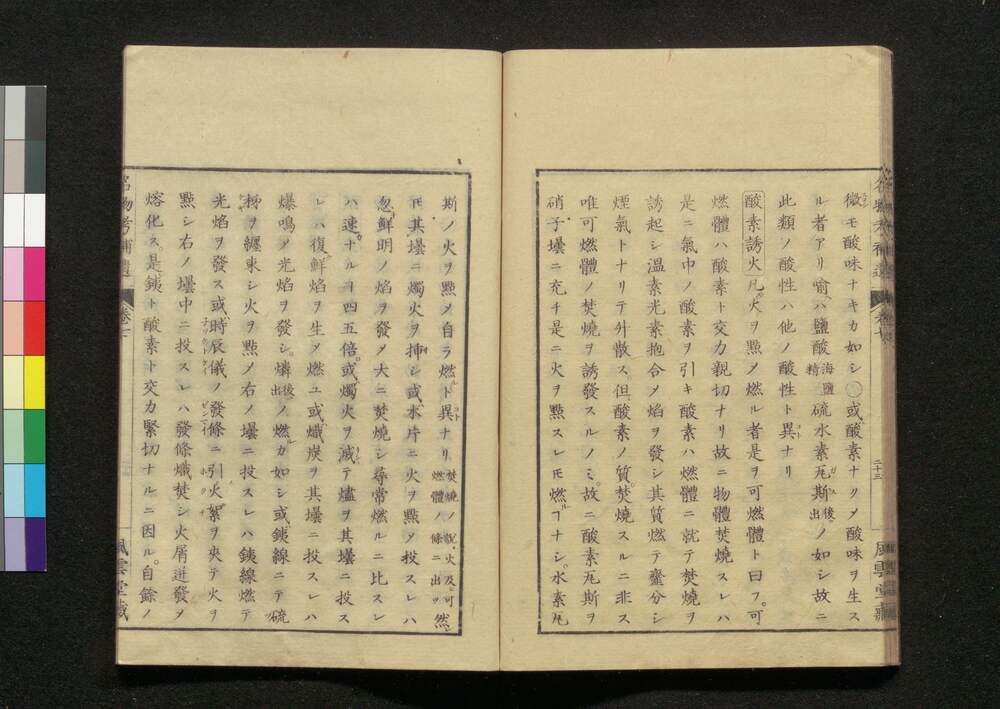 微モ酸味ナキカ如シ○或酸素ナクメ酸味ヲ生ス
ル者アリ喻ハ鹽酸海鹽精硫水素瓦斯後ニ出ノ如シ故ニ
此類ノ酸性ハ他ノ酸性ト異ナリ
酸素誘火凡火ヲ點メ燃ル者是ヲ可燃體ト曰フ可
燃體ハ酸素ト交力親切ナリ故ニ物體焚燒スレハ
是ニ氣中ノ酸素ヲ引キ酸素ハ燃體ニ就テ焚燒ヲ
誘起シ温素光素抱合メ焰ヲ發シ其質燃テ盡分シ
煙氣トナリテ外散ス但酸素ノ質焚燒スルニ非ス
唯可燃體ノ焚燒ヲ誘發スルノミ故ニ酸素瓦斯ヲ
硝子壜ニ充チ是ニ火ヲ點スレモ燃ルヿナシ水素瓦
二十三
風雲堂藏
斯ノ火ヲ點メ自ラ燃ルト異ナリ焚燒ノ說火及可燃體ノ條ニ出ヅ然
モ其壜ニ燭火ヲ挿シ或木片ニ火ヲ點メ投スレハ
忽鮮明ノ焰ヲ發メ大ニ焚燒シ尋常燃ルニ比スレ
ハ速ナルヿ四五倍或燭火ヲ滅テ燼ヲ其壜ニ投ス
レハ復鮮焰ヲ生メ燃ユ或熾炭ヲ其壜ニ投スレハ
爆鳴メ光焰ヲ發シ燐後ニ出ノ燃ルカ如シ或銕線ニテ硫
梯ヲ纏束シ火ヲ點メ右ノ壜ニ投スレハ銕線燃テ
光焰ヲ發ス或時辰儀ノ發條ニ引火絮ヲ夾テ火ヲ
點シ右ノ壜中ニ投スレハ發條熾焚シ火屑迸發メ
熔化ス是銕ト酸素ト交力緊切ナルニ因ル自餘ノ
名物考補遺
卷七
風雲堂藏